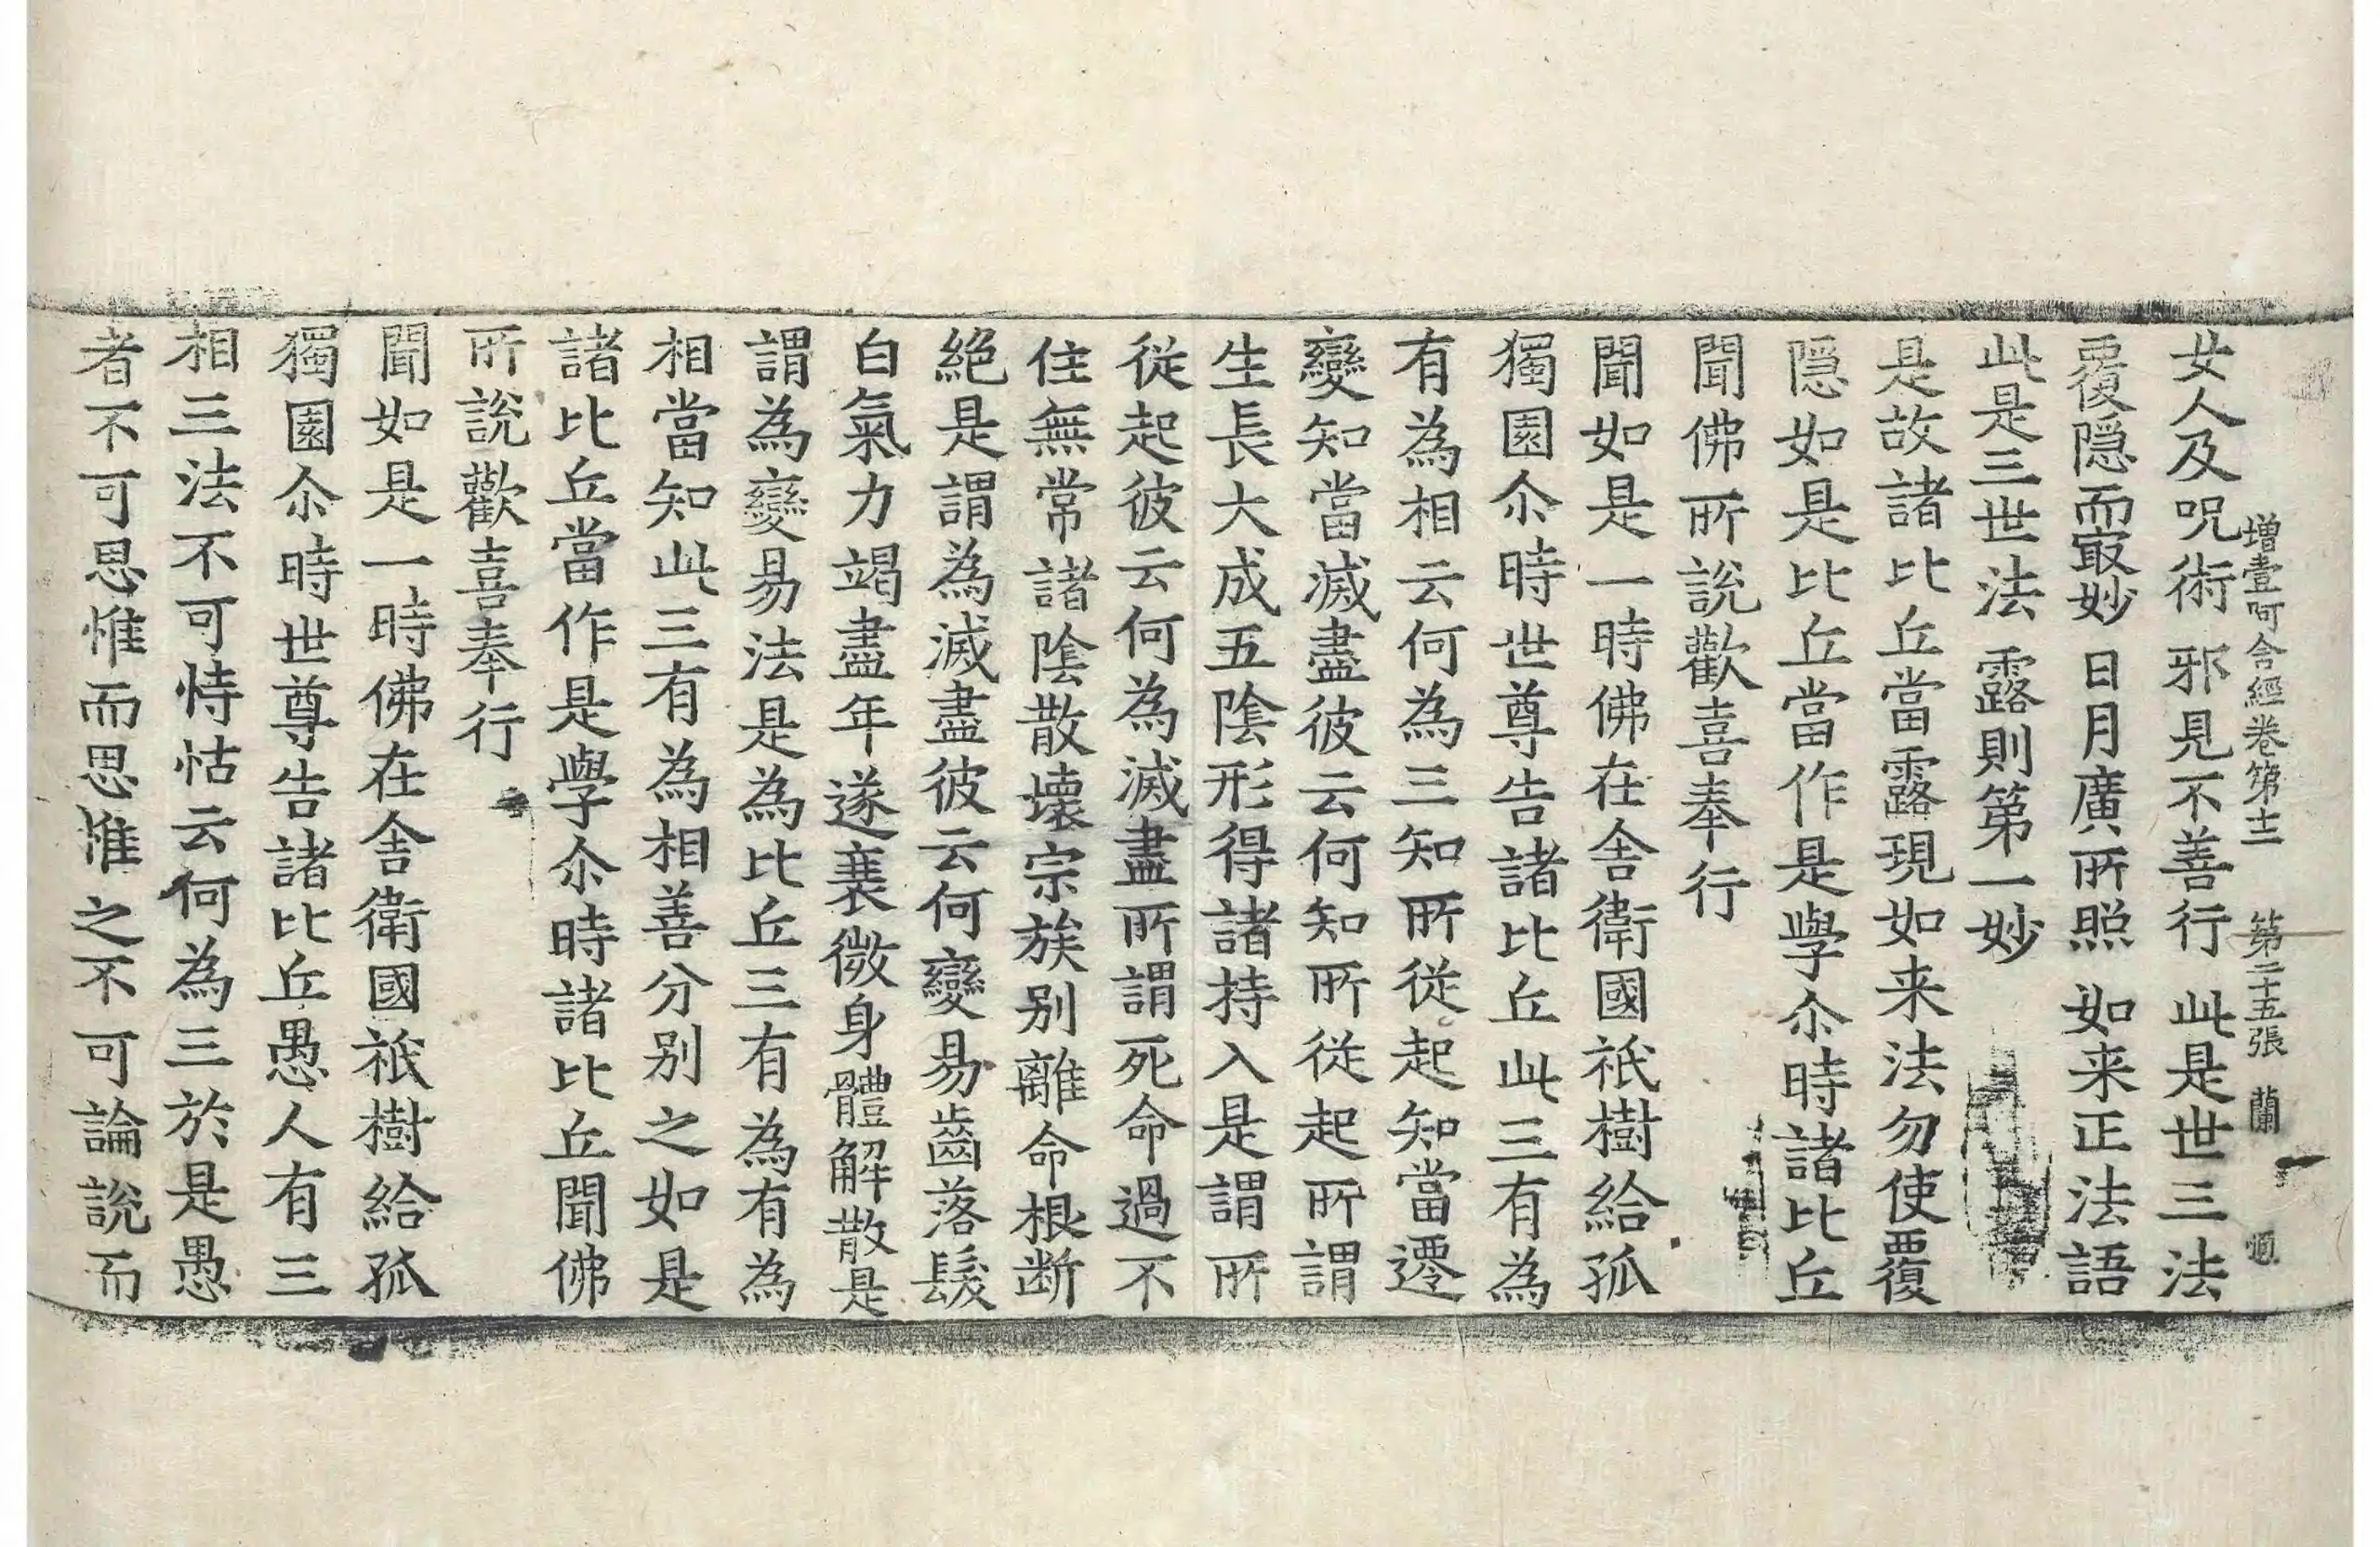 增壹阿含經卷第十二 第二十五張 蘭
女人及呪術 邪見不善行 此是世三法
覆隱而㝡妙 日月廣所照 如来正法語
此是三世法 露則第一妙
是故諸比丘當露現如来法勿使覆
隱如是比丘當作是學尒時諸比丘
聞佛所說歡喜奉行
聞如是一時佛在舍衛國祇樹給孤
獨園尒時世尊告諸比丘此三有為
有為相云何為三知所從起知當遷
變知當滅盡彼云何知所從起所謂
生長大成五陰形得諸持入是謂所
從起彼云何為滅盡所謂死命過不
住無常諸陰散壞宗族别離命根断
絕是謂為滅盡彼云何變易齒落髮
白氣力竭盡年遂衰微身體解散是
謂為變易法是為比丘三有為有為
相當知此三有為相善分别之如是
諸比丘當作是學尒時諸比丘聞佛
所說歡喜奉行
聞如是一時佛在舍衛國祇樹給孤
獨園尒時世尊告諸比丘愚人有三
相三法不可恃怙云何為三於是愚
者不可思惟而思惟之不可論說而